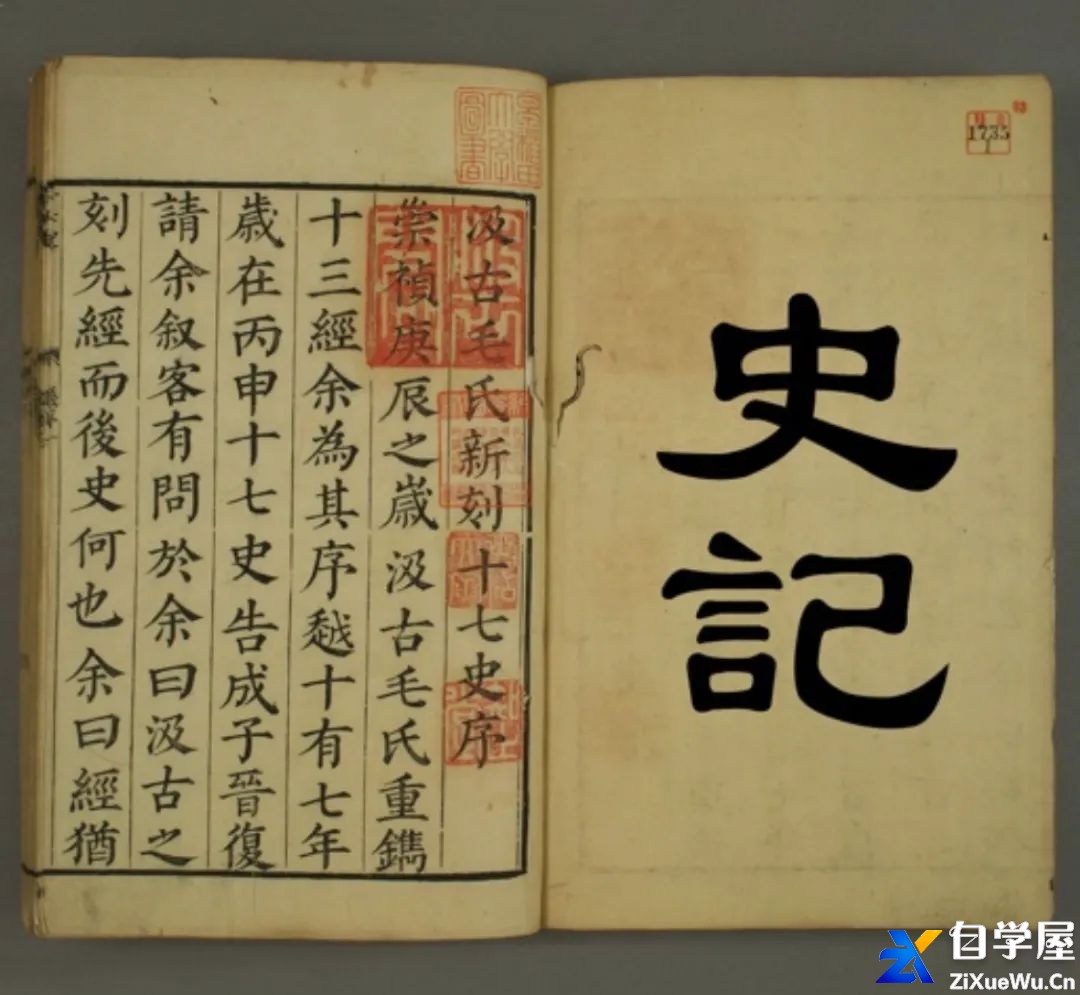 史記
1735
1
汲古毛氏新刻十七史序
崇禎庚辰之歲汲古毛氏重鐫
十三經余為其序越十有七年
歲在丙申十七史告成子晉復
請余叙客有問於余曰汲古之
刻先經而後史何也余曰經猶
自学屋
ZiXueWu.Cn